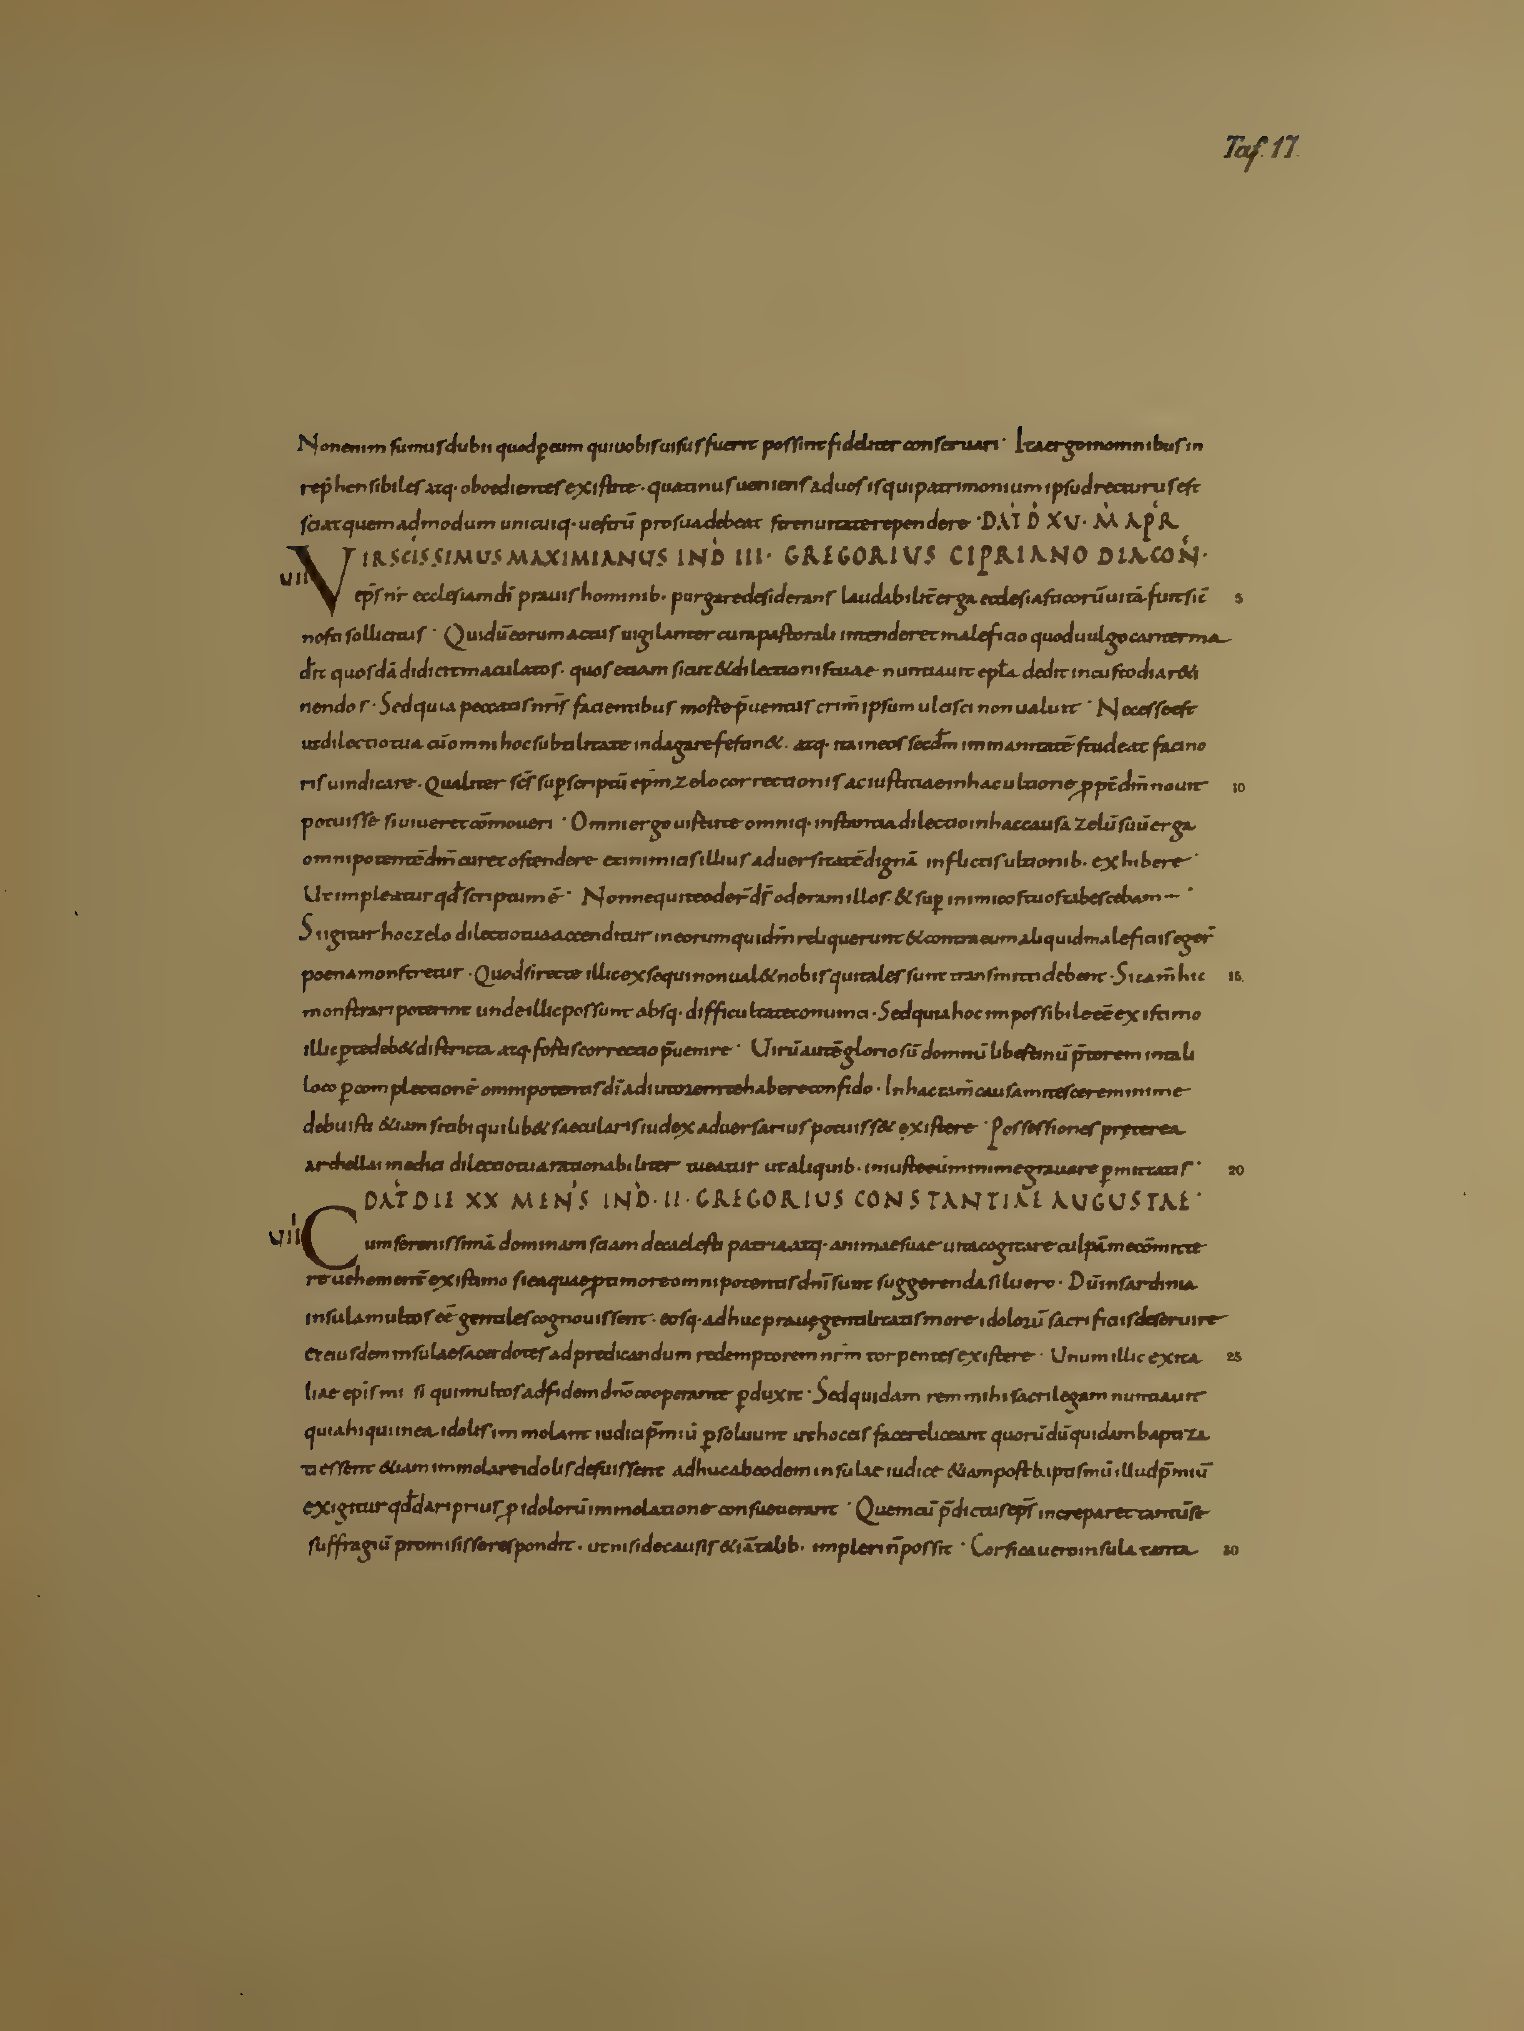 Taf. 17.
Nonenim sumus dubii quod p̱ eum qui uobis uisus fuerit possint fideliter conseruari · Ita ergo in omnibus in
rep̄hensibiles atq· oboedientes existite · quatinus ueniens ad uos is qui patrimonium ipsud recturus est
sciat quemadmodum unicuiq· uestrū pro sua debeat strenuitate rependere · DAT̄ D̄ XV· M̄ AP̄R
VII
VIR SCISSIMUS MAXIMIANUS IND̄ III· GREGORIUS CIPRIANO DIACON̄·
ep̄s nr̄ ecclesiam dī prauis hominib· purgare desiderans laudabilit̄ erga ecclesiasticorū uitā fuit sic̄ 5
nosti sollicitus · Qui dū eorum actus uigilanter cura pastorali intenderet maleficio quod uulgo canterma
dr̄t quosdā didicit maculatos · quos etiam sicut & dilectionis tuae nuntiauit epl̄a dedit in custodia r&i
nendos · Sed quia peccatis nr̄is facientibus morte p̄uentus crim̄ ipsum ulcisci non ualuit · Necesse est
ut dilectio tua cū omni hoc subtilitate indagare festin& · atq· ita in eos secd̄m immanitatē studeat facino
ris uindicare · Qualiter scs̄ sup̱scriptū epm̄ zelo correctionis ac iustitiae in hac ultione p̱p̱&̄ dm̄ nouit 10
potuisse si uiueret com̄oueri · Omni ergo uirtute omniq· instantia dilectio in hac causa zelū suū erga
omnipotentē dm̄ curet ostendere et inimicis illius aduersitatē dignā inflictis ultionib· exhibere ·
Ut impleatur qd̄ scriptum ē · Nonne qui te oder̄ dn̄s oderam illos · & sup̱ inimicos tuos tabescebam ·
Si igitur hoc zelo dilectio tua accenditur in eorum qui dm̄ reliquerunt & contra eum aliquid maleficiis eger̄
poena monstretur · Quod si recte illic exsequi non ual& nobis qui tales sunt transmitti debent · Si tam̄ hic 15
monstrari poterint unde illic possunt absq· difficultate conuinci · Sed quia hoc impossibile eē existimo
illic p̱te deb& districta atq· fortis correctio p̄uenire · Uirū autē gloriosū domnū libertinū p̄torem in tali
loco p̱ complectionē omnipotentis dī adiutorem te habere confido · In hac tam̄ causa nitescere minime
debuisti &iam si tibi quilib& saecularis iudex aduersarius potuiss& existere · Possessiones pręterea
archelai medici dilectio tua rationabiliter tueatur ut aliquib· iniuste eūm minime grauare p̱mittatis · 20
VIII
DAT̄ DIE XX MEN̄S IND̄· II· GREGORIUS CONSTANTIAE AUGUSTAE·
Cum serenissimā dominam sciam de caelesti patria atq· animae suae uita cogitare culpā me com̄itte
re uehement̄ existimo si ea quae p̱ timore omnipotentis dn̄i sunt suggerenda siluero · Dū in sardinia
insula multos eē gentiles cognouissent · eosq· adhuc prauę gentilitatis more idolorū sacrificiis deseruire
et eiusdem insulae sacerdotes ad predicandum redemptorem nr̄m torpentes existere · Unum illic ex ita 25
liae epis̄ misi qui multos ad fidem dn̄o cooperante p̱duxit · Sed quidam rem mihi sacrilegam nuntiauit
quia hi qui in ea idolis immolant iudici p̄miū p̱soluunt ut hoc eis facere liceant quorū dū quidam baptiza
ti essent &iam immolare idolis desuissent adhuc ab eodem insulae iudice &iam post baptismū illud p̄miū
exigitur qd̄ dari prius p̱ idolorū immolatione consueuerant · Quem cū p̄dictus ep̄s increparet tantū se
suffragiū promisisse respondit · ut nisi de causis &iā talib· impleri n̄ possit · Corsica uero insula tanta 30